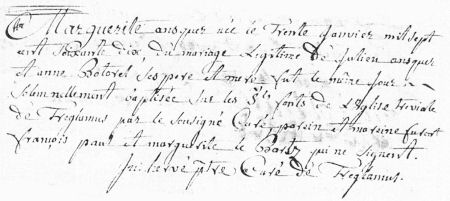 Marguerite ansquer née le Trente janvier mil sept
cent soixante dix, du mariage Legitime de julien ansquer
et anne Botorel, ses pere et mere fut le même jour
Solemnellement baptisée sur les Sts fonts de L'Eglise treviale
de Treglamus par le sousigné Curé, parein et mareine furent
francois paul et marguerite le qui ne signent.
herve ptre Curé de Treglamus.